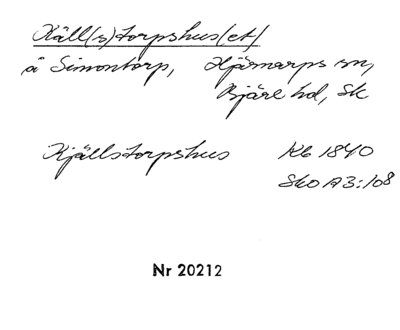 Käll(s)torpshus(et)
å Simontorp, Hjärnarps sn,
Bjäre hd, Sk
Kjällstorpshus Kb 1840
Sko A3:108
Nr 20212